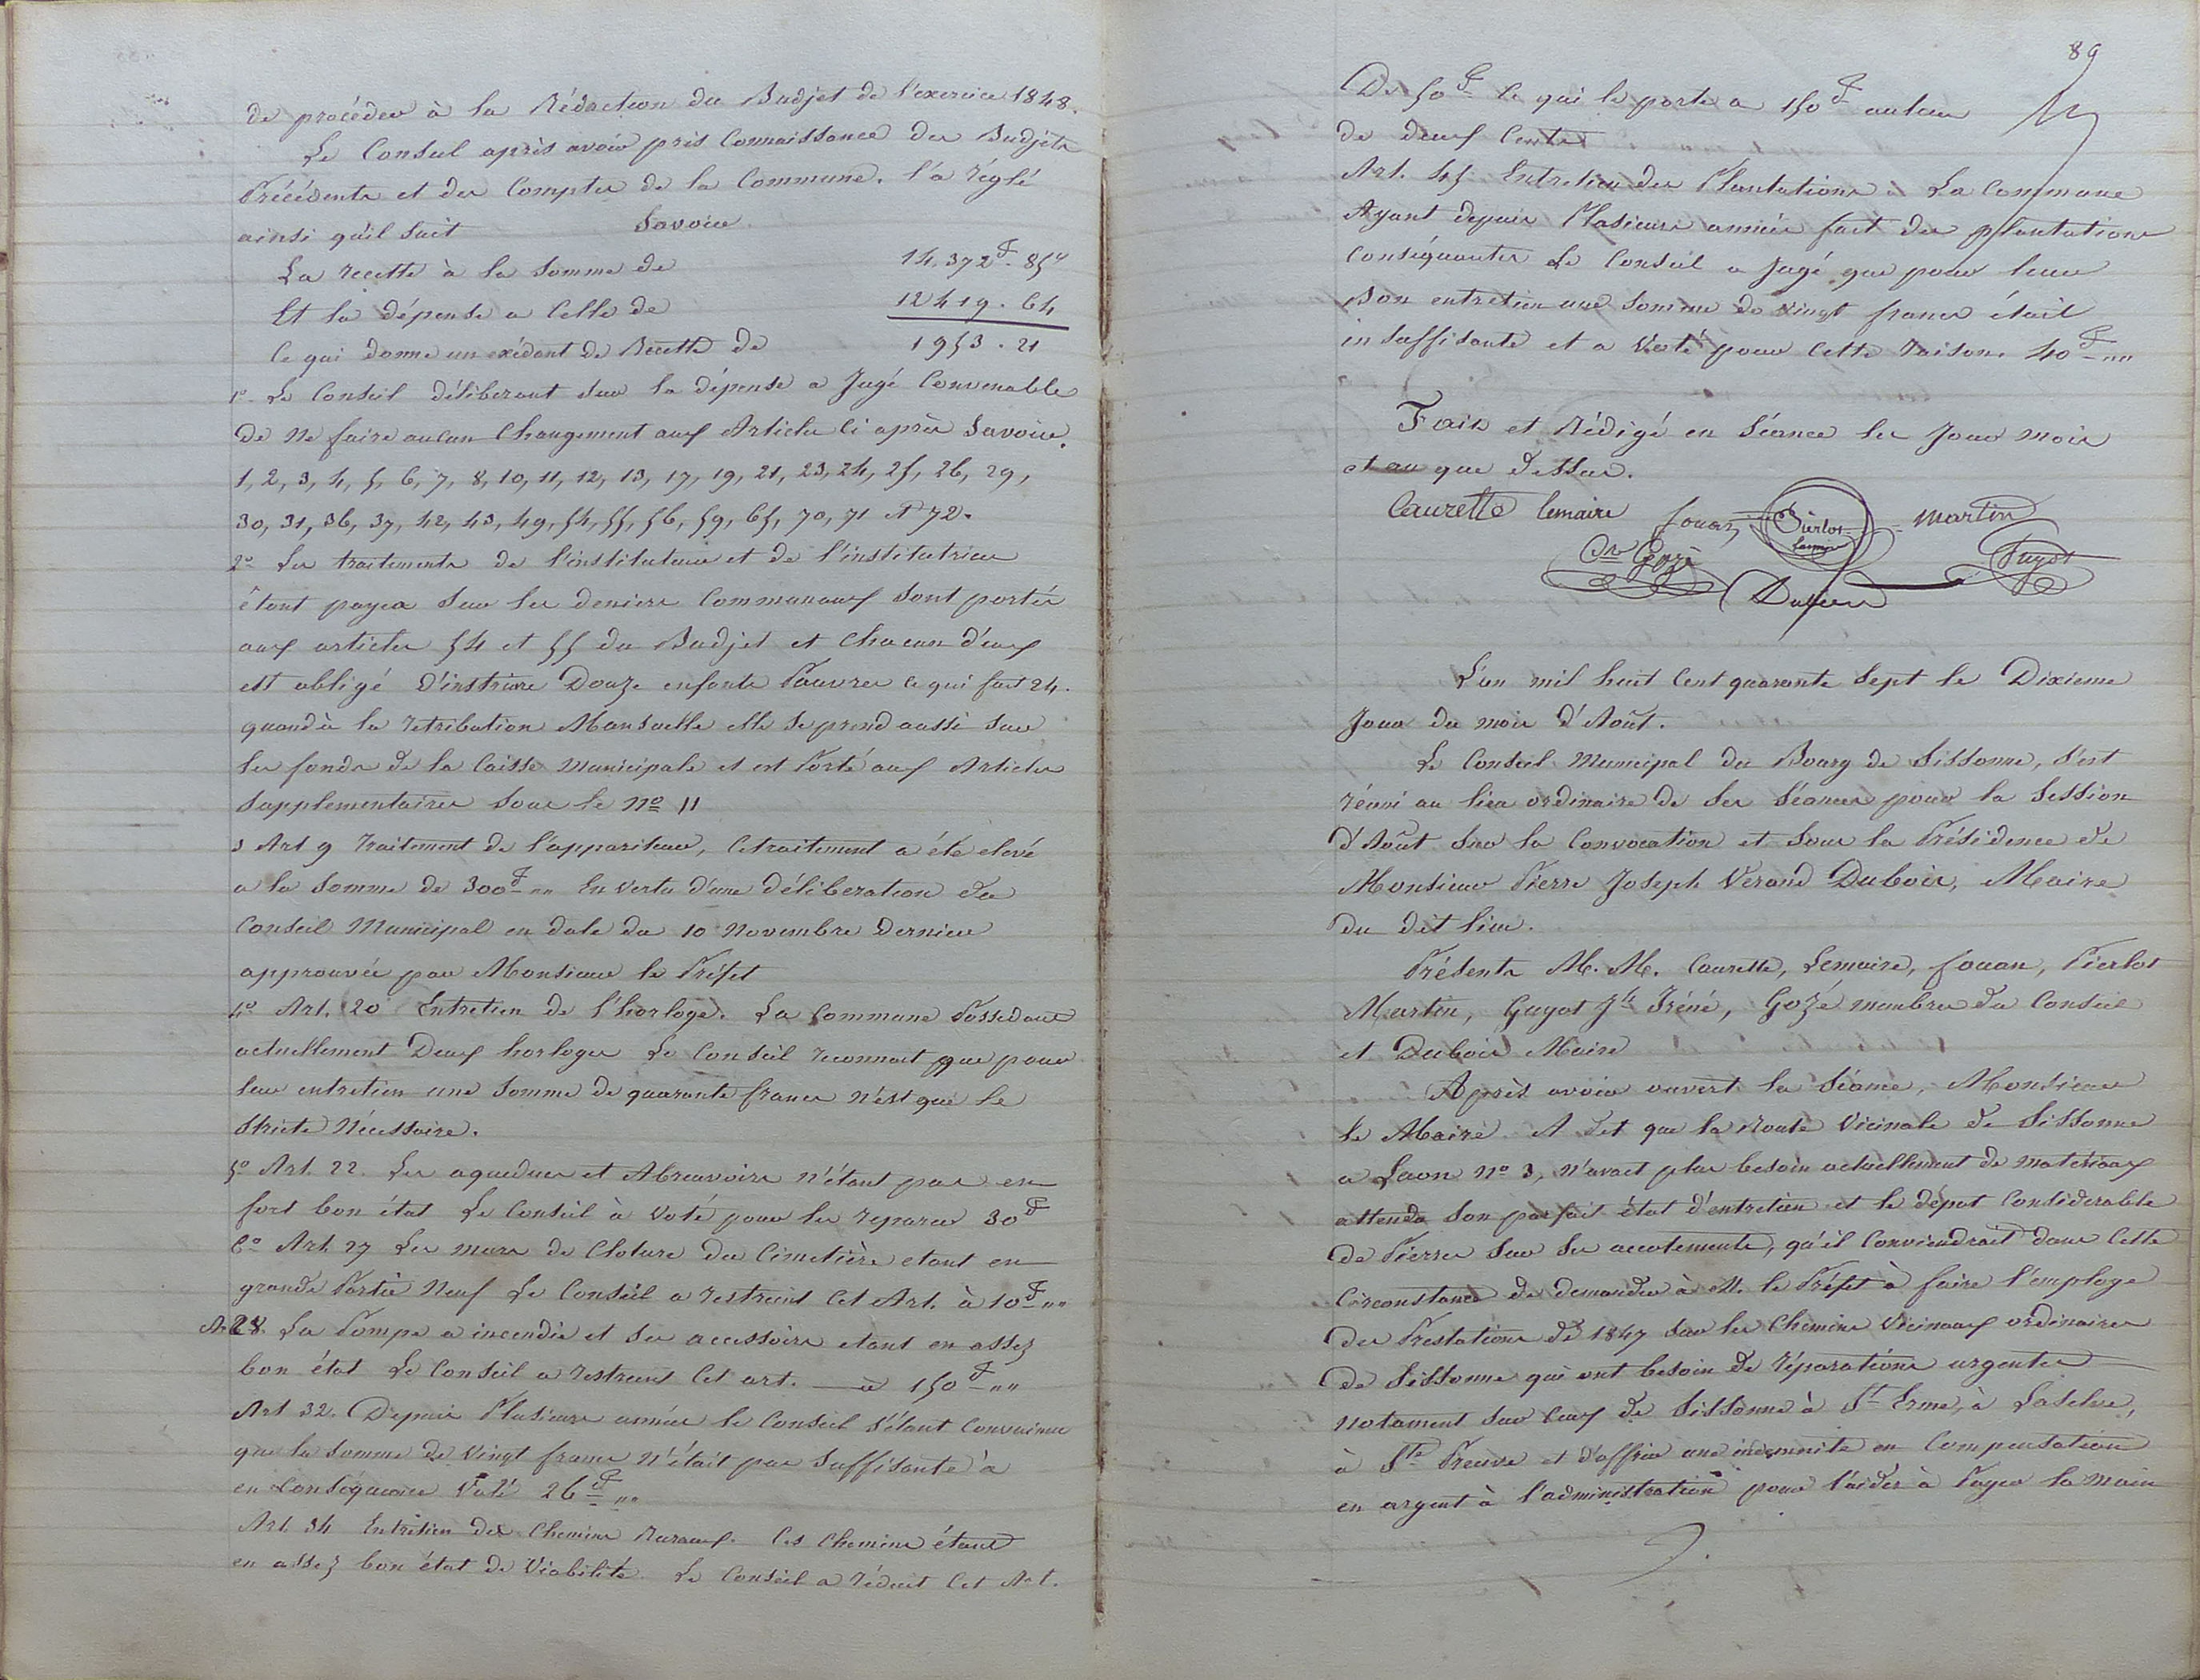 de procéder à la Rédaction du Budjet de l'exercice 1848.
Le Conseil après avoir pris Connaissance des Budjets
Précédents et des Comptes de la Commune. l'a réglé
ainsi qu'il suit Savoir
La recette à la Somme de 14.372F. 85c
Et la dépense a Celle de 12419. 64
Ce qui donne un exédant de Recette de 1953. 21
1o Le Conseil déliberant sur la dépense a Jugé Convenable
de ne faire aucun Changement aux Articles Ci après Savoir.
1, 2, 3, 4, 5, 6, 7, 8, 10, 11, 12, 13, 17, 19, 21, 23, 24, 25, 26, 29,
30, 31, 36, 37, 42, 43, 49, 54, 55, 56, 59, 65, 70, 71 et 72.
2o Les traitements de l'instituteur et de l'institutrice
êtant payes sur les deniers Communaux sont portés
aux articles 54 et 55 du Budjet et Chacun d'eux
est obligé d'instruire Douze enfants Pauvres ce qui fait 24.
quand à la retribution Mensuelle elle se prend aussi sur
les fonds de la Caisse Municipale et est Porté aux Articles
Supplementaires sous le No 11
3 Art 9 Traitement de l'appariteur, Ce traitement a été elevé
a la Somme de 300F "" En vertu d'une déliberation du
Conseil Municipal en date du 10 Novembre Dernier
approuvée par Monsieur le Préfet
4o Art. 20 Entretien de l'horloge. La Commune Possedant
actuellement Deux horloges Le Conseil reconnait que pour
leur entretien une Somme de quarante francs n'est que le
Stricte Nécessaire.
5o Art. 22. Les aqueducs et Abreuvoirs n'étant pas en
fort bon état Le Conseil à Voté pour les reparer 30F
6o Art. 27 Les murs de Cloture du Cimetière etant en
grande Partie Neuf Le Conseil a restreint Cet Art. à 10F ""
Ar. 28. La Pompe a incendie et ses accessoires etant en assez
bon état Le Conseil a restreint Cet art. à 150F ""
Art 32. Depuis Plusieurs années le Conseil s'étant Convaincu
que la Somme de Vingt francs n'était pas Suffisante à
en Conséquence Voté 26F ""
Art. 34 Entretien des Chemins Ruraux. Ces Chemins étant
en assez bon état de Viabilité. Le Conseil a réduit Cet Art.
89
De 50F Ce qui le porte a 150F au lieu
de deux Cents
Art. 45 Entretien des Plantations La Commune
Ayant depuis Plusieurs année fait des plantations
Conséquantes Le Conseil a Jugé que pour leur
Bon entretien une Somme de vingt francs était
insuffisante et a Voté pour Cette raison. 40F ""
Fait et Rédigé en Séance les Jour mois
et an que dessus.
Caurette lemaire fouan Pierlot martin
Gozé Guyot
Dubois
L'an mil huit Cent quarante Sept le Dixieme
Jour du mois d'Août.
Le Conseil Municipal du Bourg de Sissonne, s'est
réuni au lieu ordinaire de Ses Séances pour la Session
d'Août Sur la Convocation et Sous la Présidence de
Monsieur Pierre Joseph Verand Dubois, Maire
du dit lieu.
Présents M. M. Caurette, Lemaire, fouan, Pierlot
Martin, Guyot Jh Iréné, Gozé membres du Conseil
et Dubois Maire
Après avoir ouvert la Séance, Monsieur
le Maire A dit que la Route Vicinale de Sissonne
a Laon No 3, n'avait plus besoin actuellement de matériaux
attendu Son parfait état d'entretien et le dépot Considerable
de Pierres Sur Ses accotements, qu'il Conviendrait dans Cette
Circonstance de demander à M. le Préfet à faire l'employe
des Prestations de 1847 sur les Chemins Vicinaux ordinaires
de Sissonne qui ont besoin de réparations urgentes
notament sur Ceux de Sissonne à St Erme, à Laselve,
à Ste Preuve et d'offrir une indemnité en Compensation
en argent à l'administration pour l'aider à Payer la main